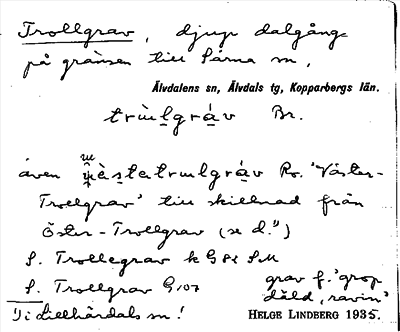 Trollgrav, djup dalgång
på gränsen till Särna sn,
Älvdalens sn, Älvdals tg, Kopparbergs län.
trùlgráv Br.
även wästatrulgrav Ro. 'Väster-
Trollgrav' till skillnad från
Öster-Trollgrav (se d.¹⁾)
S. Trollegrav k G82 SM
S. Trollgrav G107
grav f. 'grop
däld, ravin'
1) i Lillhärdals sn!
HELGE LINDBERG 1935.